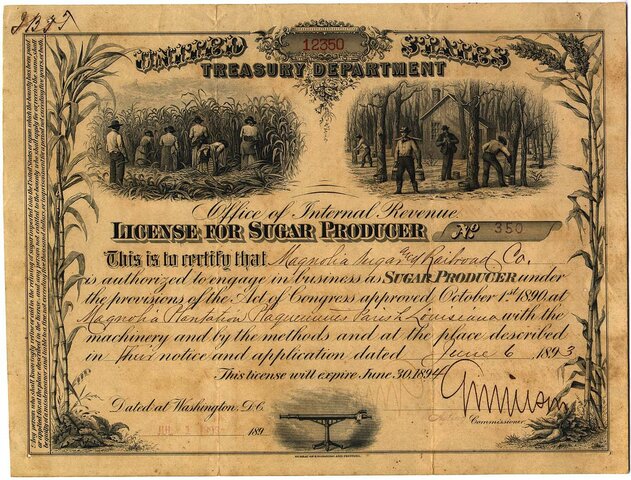 UNITED STATES
12350
TREASURY DEPARTMENT
Office of Internal Revenue.
LICENSE FOR SUGAR PRODUCER No 350
This is to certify that Magnolia Sugar and Railroad Co.
is authorized to engage in business as SUGAR PRODUCER under
the provisions of the Act of Congress approved October 1st 1890, at
Magnolia Plantation Plaquemines Parish Louisiana with the
machinery and by the methods and at the place described
in their notice and application dated June 6 1893
This license will expire June 30, 1894
Dated at Washington, D.C.
189
Commissioner.
BUREAU OF ENGRAVING AND PRINTING.